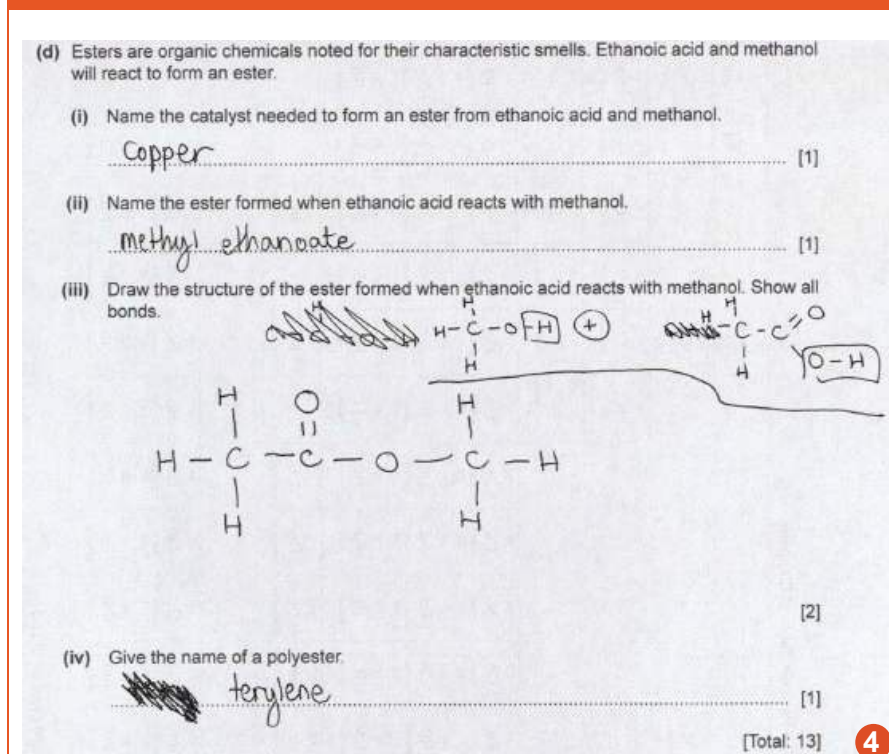 (d) Esters are organic chemicals noted for their characteristic smells. Ethanoic acid and methanol
will react to form an ester.
(i) Name the catalyst needed to form an ester from ethanoic acid and methanol.
Copper [1]
(ii) Name the ester formed when ethanoic acid reacts with methanol.
methyl ethanoate [1]
(iii) Draw the structure of the ester formed when ethanoic acid reacts with methanol. Show all
bonds.
H H H
H-C-O-H + H-C-C=O
H H O-H
H O H
H-C-C-O-C-H
H H
[2]
(iv) Give the name of a polyester.
terylene [1]
[Total: 13] 4